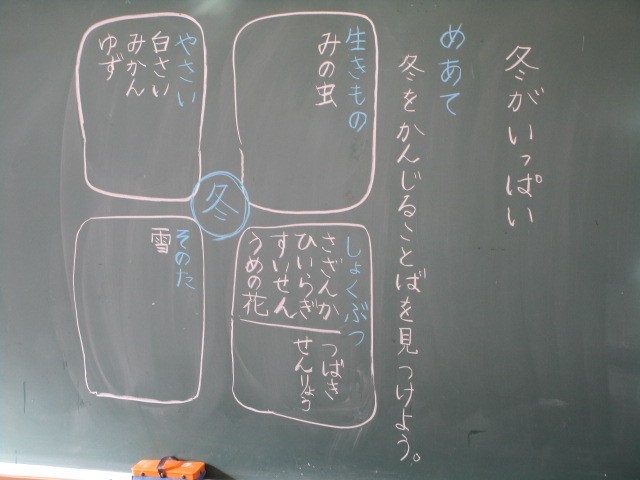 冬がいっぱい
めあて
冬をかんじることばを見つけよう。
生きもの
みの虫
しょくぶつ
さざんか
ひいらぎ
すいせん
うめの花
つばき
せんりょう
冬
やさい
白さい
みかん
ゆず
そのた
雪